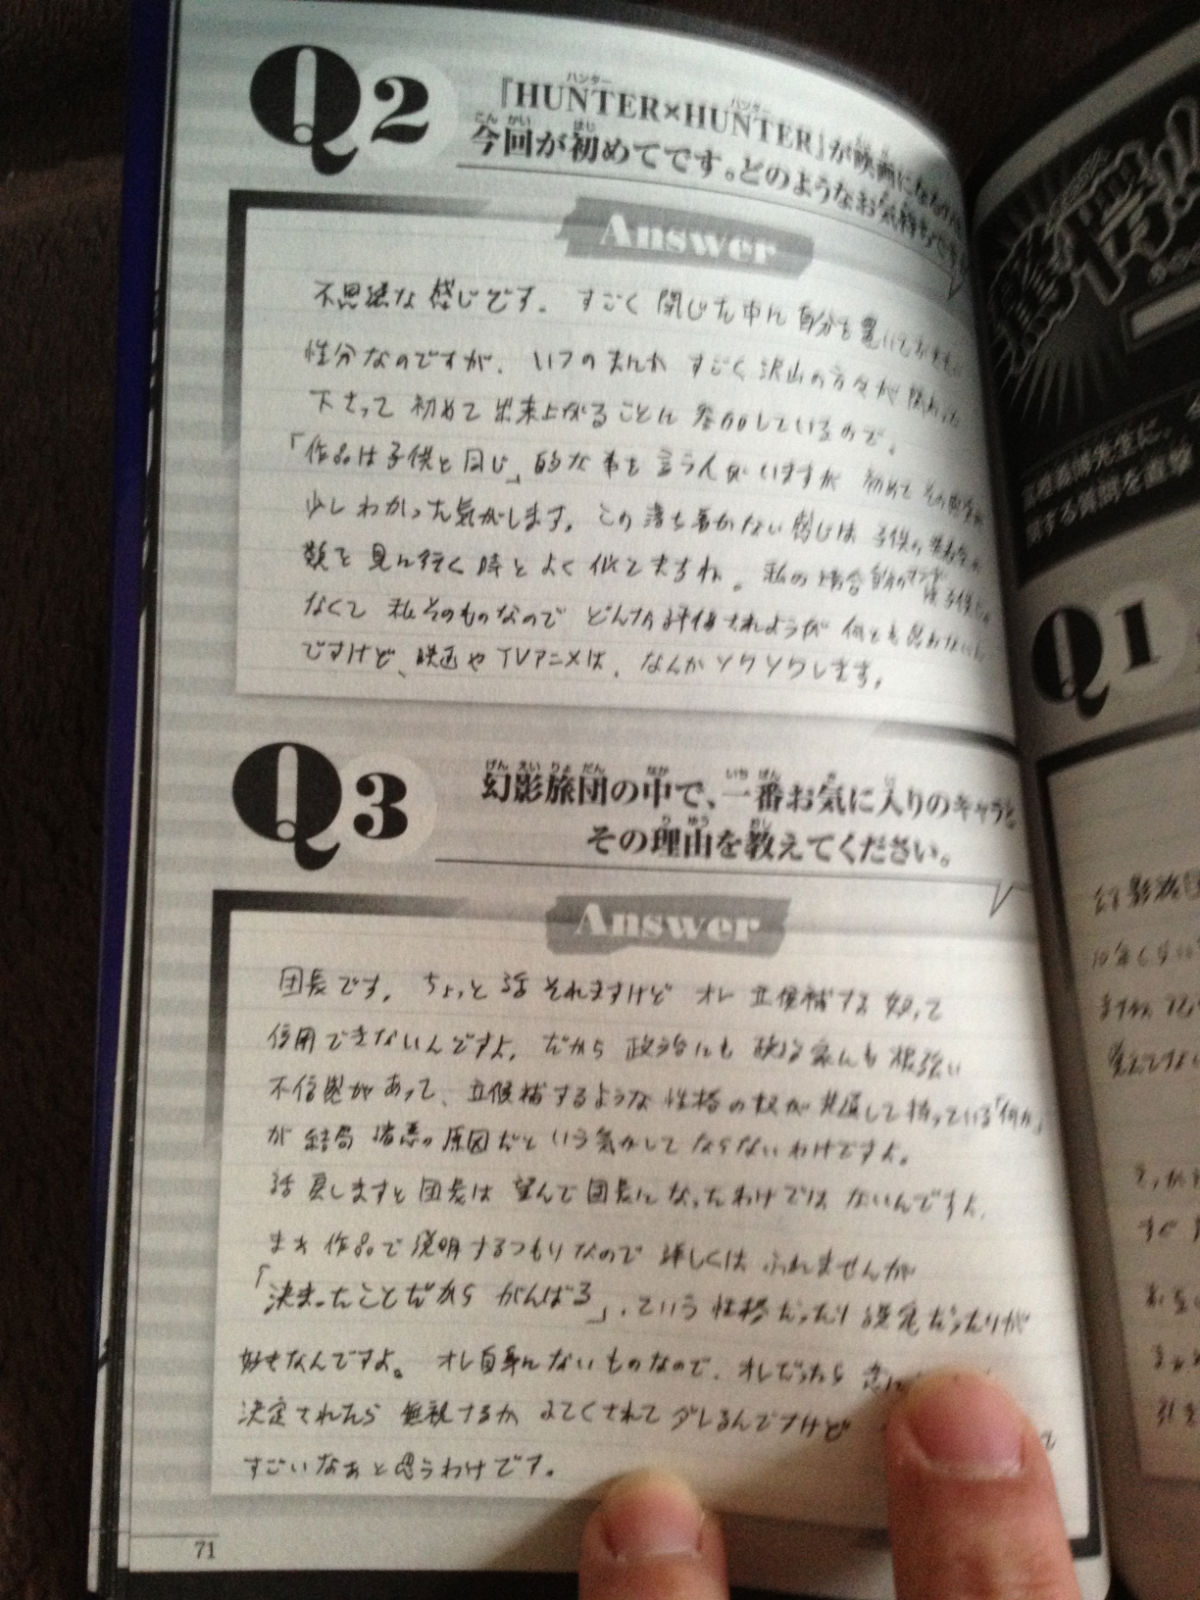 Q2
『HUNTER×HUNTER』が映画になるのは
今回が初めてです。どのようなお気持ちです
Answer
不思議な感じです。すごく閉じた中に自分を置いておきたい
性分なのですが、いつのまにか すごく沢山の方々が関わって
下さって 初めて出来上がることに 参加しているので。
「作品は子供と同じ」的な事を言う人がいますが 初めてその
少しわかった気がします。この落ち着かない感じは 子供の
類を見に行く時とよく似てますね。私の場合 自分のマンガは子供じゃ
なくて 私そのものなので どんな評価されようが 何とも思わないん
ですけど、映画やTVアニメは、なんかソワソワします。
Q3
幻影旅団の中で、一番お気に入りのキャラと
その理由を教えてください。
Answer
団長です。ちょっと話それますけど オレ 立候補する奴って
信用できないんですよ。だから 政治にも 政治家にも 根強い
不信感があって、立候補するような性格の奴が共通して持っている「何か」
が 結局 諸悪の原因だという気がして ならないわけですよ。
話戻しますと団長は 望んで団長に なったわけではないんですよ。
まあ 作品で説明するつもりなので 詳しくは ふれませんが
「決まったことだから がんばる」、という性格だったり 設定だったりが
好きなんですよ。オレ自身にないものなので、オレだったら
決定されたら 無視するか ふてくされて ダレるんですけど
すごいなぁと思うわけです。
71
Q1
幻影旅団